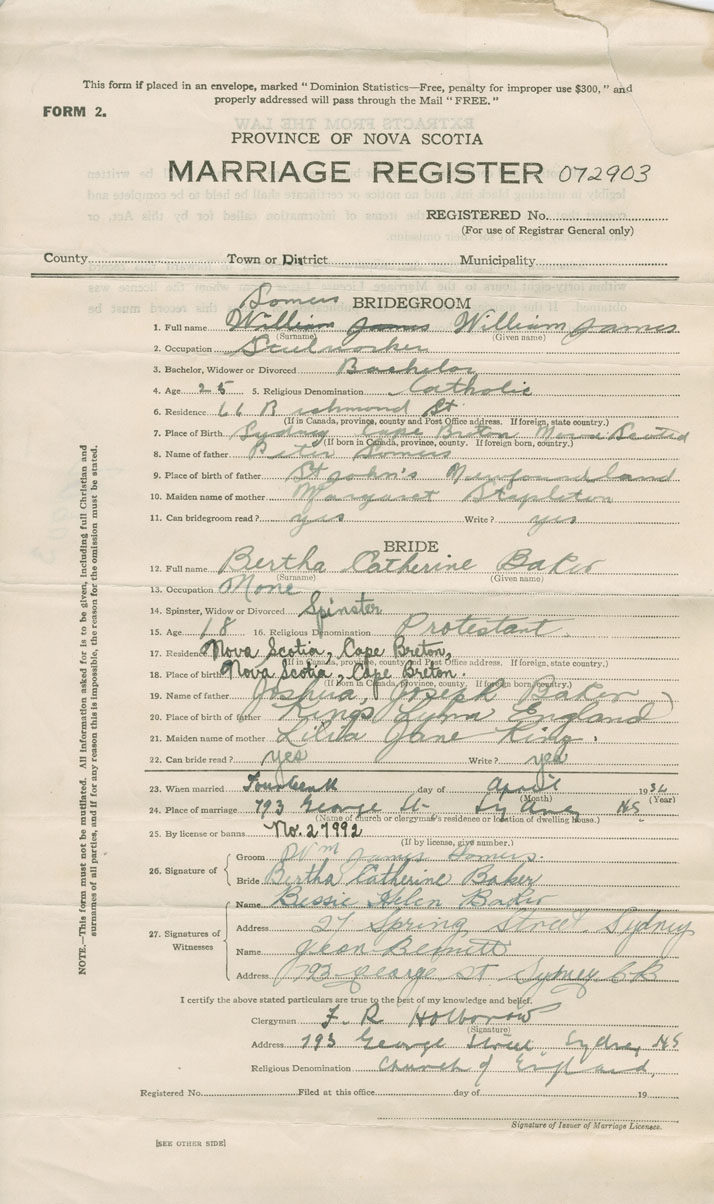 This form if placed in an envelope, marked "Dominion Statistics—Free, penalty for improper use $300," and
properly addressed will pass through the Mail "FREE."
FORM 2.
PROVINCE OF NOVA SCOTIA
MARRIAGE REGISTER 072903
REGISTERED No.
(For use of Registrar General only)
County Town or District Municipality
Somers BRIDEGROOM
1. Full name William James William James
(Surname) (Given name)
2. Occupation Steelworker
3. Bachelor, Widower or Divorced Bachelor
4. Age 25 5. Religious Denomination Catholic
6. Residence 66 Richmond St
(If in Canada, province, county and Post Office address. If foreign, state country.)
7. Place of Birth Sydney Cape Breton Nova Scotia
(If born in Canada, province, county. If foreign born, country.)
8. Name of father Peter Somers
9. Place of birth of father St John's Newfoundland
10. Maiden name of mother Margaret Stapleton
11. Can bridegroom read? yes Write? yes
BRIDE
12. Full name Bertha Catherine Baker
(Surname) (Given name)
13. Occupation None
14. Spinster, Widow or Divorced Spinster
15. Age 18 16. Religious Denomination Protestant
17. Residence Nova Scotia, Cape Breton,
(If in Canada, province, county and Post Office address. If foreign, state country.)
18. Place of birth Nova Scotia, Cape Breton.
(If born in Canada, province, county. If foreign born, country.)
19. Name of father Joshua, Joseph Baker
20. Place of birth of father Kings Lynn England
21. Maiden name of mother Jane King
22. Can bride read? yes Write? yes
23. When married Fourteenth day of April 1934
(Month) (Year)
24. Place of marriage 793 George St. Sydney NS
(Name of church or clergyman's residence or location of dwelling house.)
25. By license or banns No. 27992
(If by license, give number.)
26. Signature of
Groom Wm James Somers.
Bride Bertha Catherine Baker
27. Signatures of Witnesses
Name Bessie Helen Baker
Address 27 Spring Street Sydney
Name Jean Bennett
Address 793 George St Sydney C B
I certify the above stated particulars are true to the best of my knowledge and belief.
Clergyman F. R Holborow
(Signature)
Address 793 George Street Sydney NS
Religious Denomination Church of England
Registered No. Filed at this office day of 19
Signature of Issuer of Marriage Licenses.
[SEE OTHER SIDE]
NOTE.—This form must not be mutilated. All information asked for is to be given, including full Christian and
surnames of all parties, and if for any reason this is impossible, the reason for the omission must be stated.